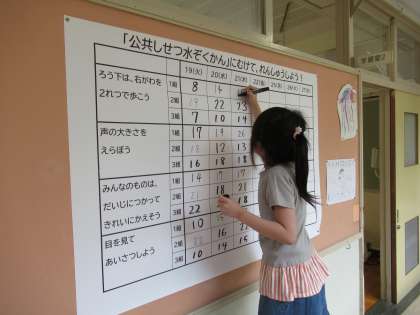 「公共しせつ水ぞくかん」にむけて、れんしゅうしよう！
19(火) 20(水) 21(木) 22(金)
ろう下は、右がわを
2れつで歩こう
1組 8 14
2組 19 22 23
3組 7 10 14
声の大きさを
えらぼう
1組 17 19 26
2組 18 12 13
3組 16 18 18
みんなのものは、
だいじにつかって
きれいにかえそう
1組 14 7 17
2組 21 18 21
3組 22 18
目を見て
あいさつしよう
1組 10 16
2組 22 16 22
3組 10 14 15